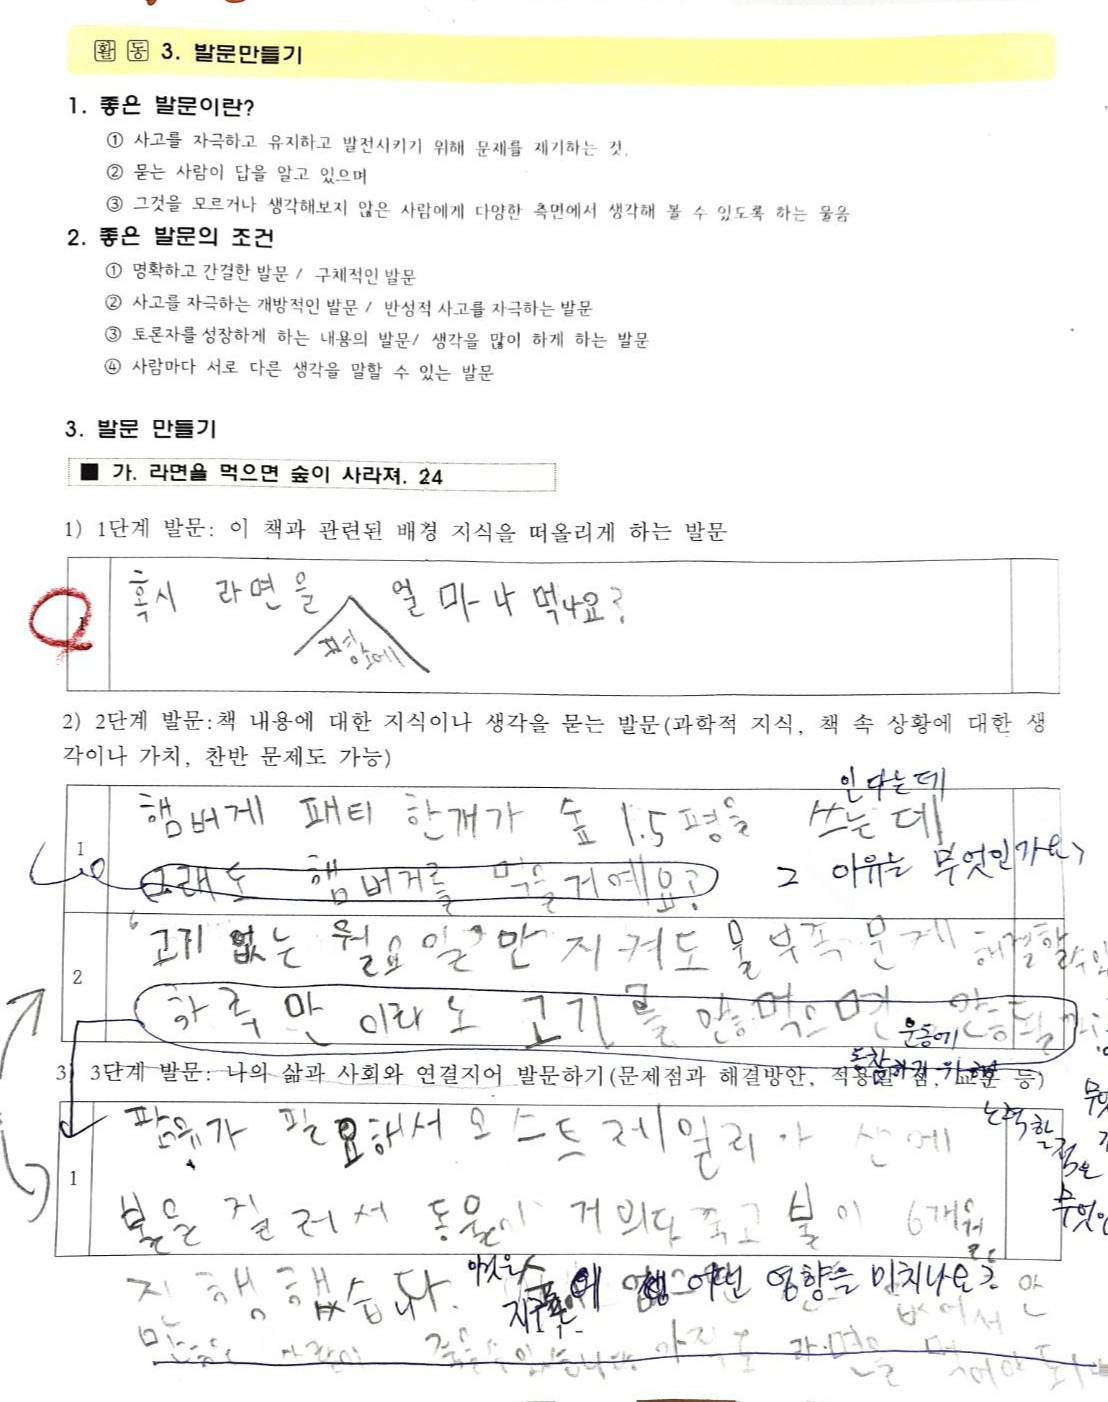 활동 3. 발문만들기
1. 좋은 발문이란?
① 사고를 자극하고 유지하고 발전시키기 위해 문제를 제기하는 것.
② 묻는 사람이 답을 알고 있으며
③ 그것을 모르거나 생각해보지 않은 사람에게 다양한 측면에서 생각해 볼 수 있도록 하는 물음
2. 좋은 발문의 조건
① 명확하고 간결한 발문 / 구체적인 발문
② 사고를 자극하는 개방적인 발문 / 반성적 사고를 자극하는 발문
③ 토론자를 성장하게 하는 내용의 발문/ 생각을 많이 하게 하는 발문
④ 사람마다 서로 다른 생각을 말할 수 있는 발문
3. 발문 만들기
■ 가. 라면을 먹으면 숲이 사라져. 24
1) 1단계 발문: 이 책과 관련된 배경 지식을 떠올리게 하는 발문
1 혹시 라면을 얼마나 먹나요?
평상에
2) 2단계 발문:책 내용에 대한 지식이나 생각을 묻는 발문(과학적 지식, 책 속 상황에 대한 생
각이나 가치, 찬반 문제도 가능)
인다는데
1 햄버게 패티 한개가 숲 1.5평을 쓰는데
그래도 햄버거를 먹을거예요? 그 이유는 무엇인가요?
2 '고기 없는 월요일'만 지켜도 물부족 문제 해결할
하루만이라도 고기를 안 먹으면 안
운동에
3 3단계 발문: 나의 삶과 사회와 연결지어 발문하기(문제점과 해결방안, 적용할 점, 교훈 등)
노력할
점은
1 팜유가 필요해서 오스트레일리아 산에
불을 질러서 동물이 거의다 죽고 불이 6개월
진행 했습니다. 이것은 지구촌에 어떤 영향을 미치나요?
라면을